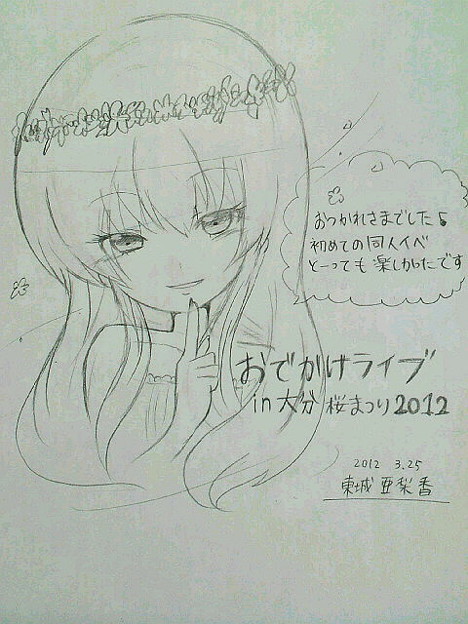 おつかれさまでした♪
初めての同人イベ
とーっても楽しかたです
おでかけライブ
in 大分 桜まつり 2012
2012 3.25
東城 亜梨香